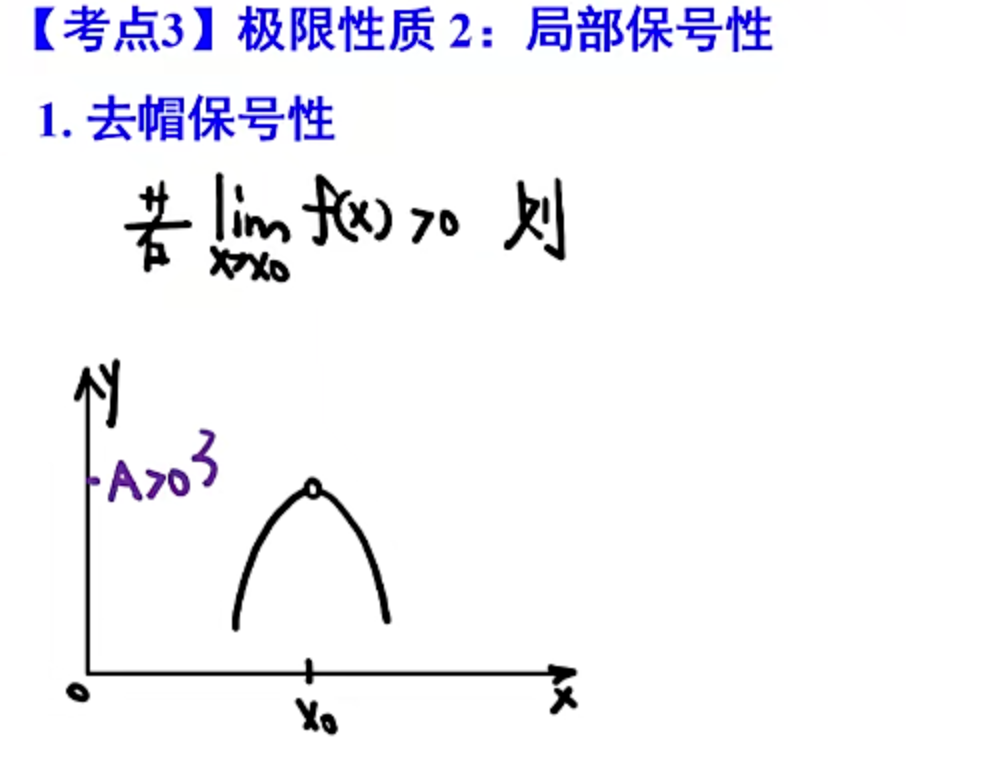 【考点3】极限性质 2：局部保号性
1. 去帽保号性
若 lim f(x) >0 则
x→x0
y
A>0 3
0
x0
x